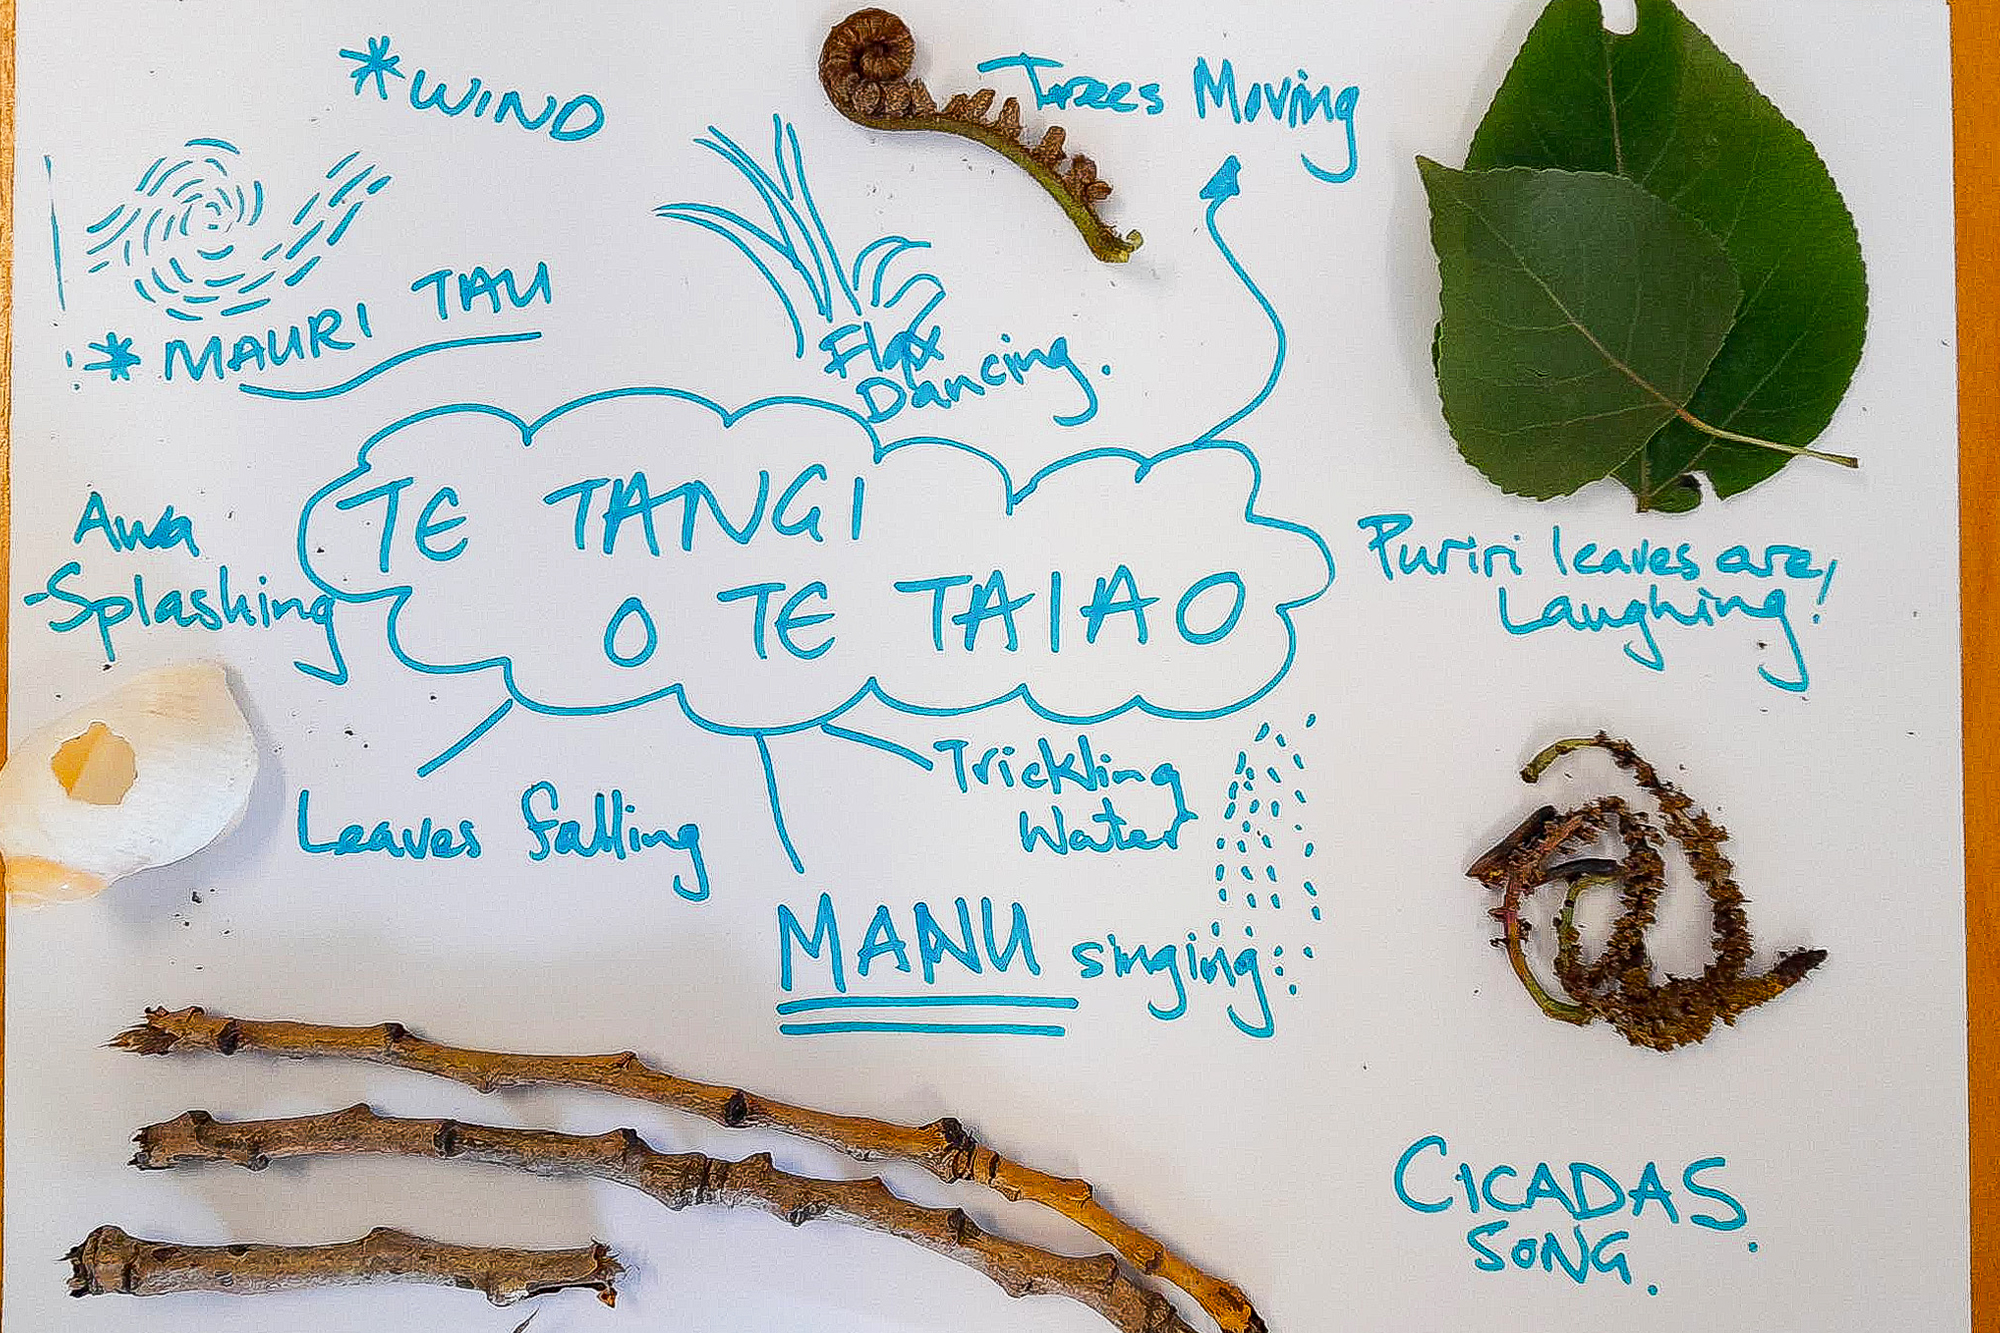 *WIND
Trees Moving
*MAURI TAU
Flax
Dancing.
TE TANGI
O TE TAIAO
Awa
Splashing
Puriri leaves are
Laughing!
Leaves falling
Trickling
Water
MANU singing
CICADAS.
SONG.